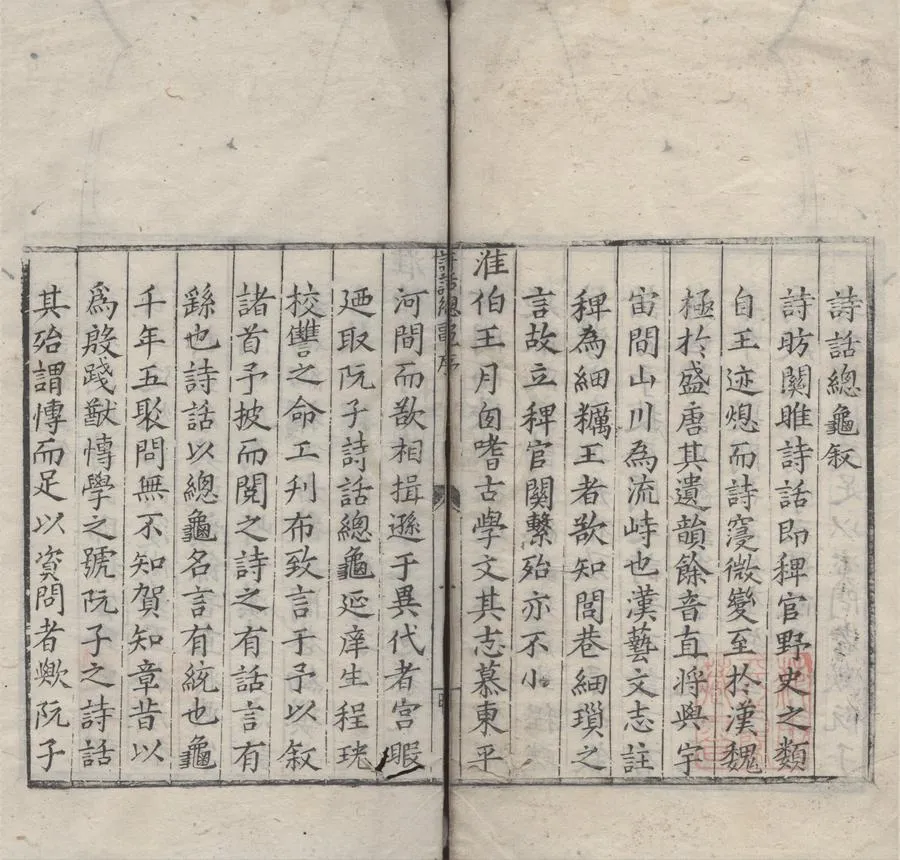 詩話總龜叙
詩昉關雎詩話即稗官野史之類
自王迹熄而詩寖微變至於漢魏
極於盛唐其遺韻餘音直將與宇
宙間山川為流峙也漢藝文志註
稗為細糲王者欲知閭巷細瑣之
言故立稗官關繫殆亦不小
淮伯王月囱嗜古學文其志慕東平
詩話總龜序
一
河間而欲相揖遜于異代者宮暇
廼取阮子詩話總龜延庠生程珖
校讐之命工刋布致言于予以叙
諸首予披而閱之詩之有話言有
繇也詩話以總龜名言有統也龜
千年五聚問無不知賀知章昔以
為殷踐猷慱學之號阮子之詩話
其殆謂慱而足以資問者歟阮子